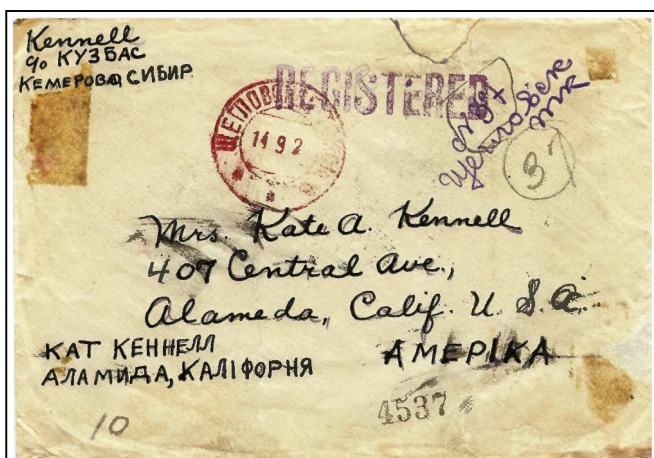 Kennell
c/o КУЗБАС
КЕМЕРОВО, СИБИР
REGISTERED
14 9 2
37
Mrs. Kate A. Kennell
407 Central Ave.,
Alameda, Calif. U. S. A.
КАТ КЕННЕЛЛ
АЛАМИДА, КАЛІФОРНЯ
АМЕРІКА
4537
10